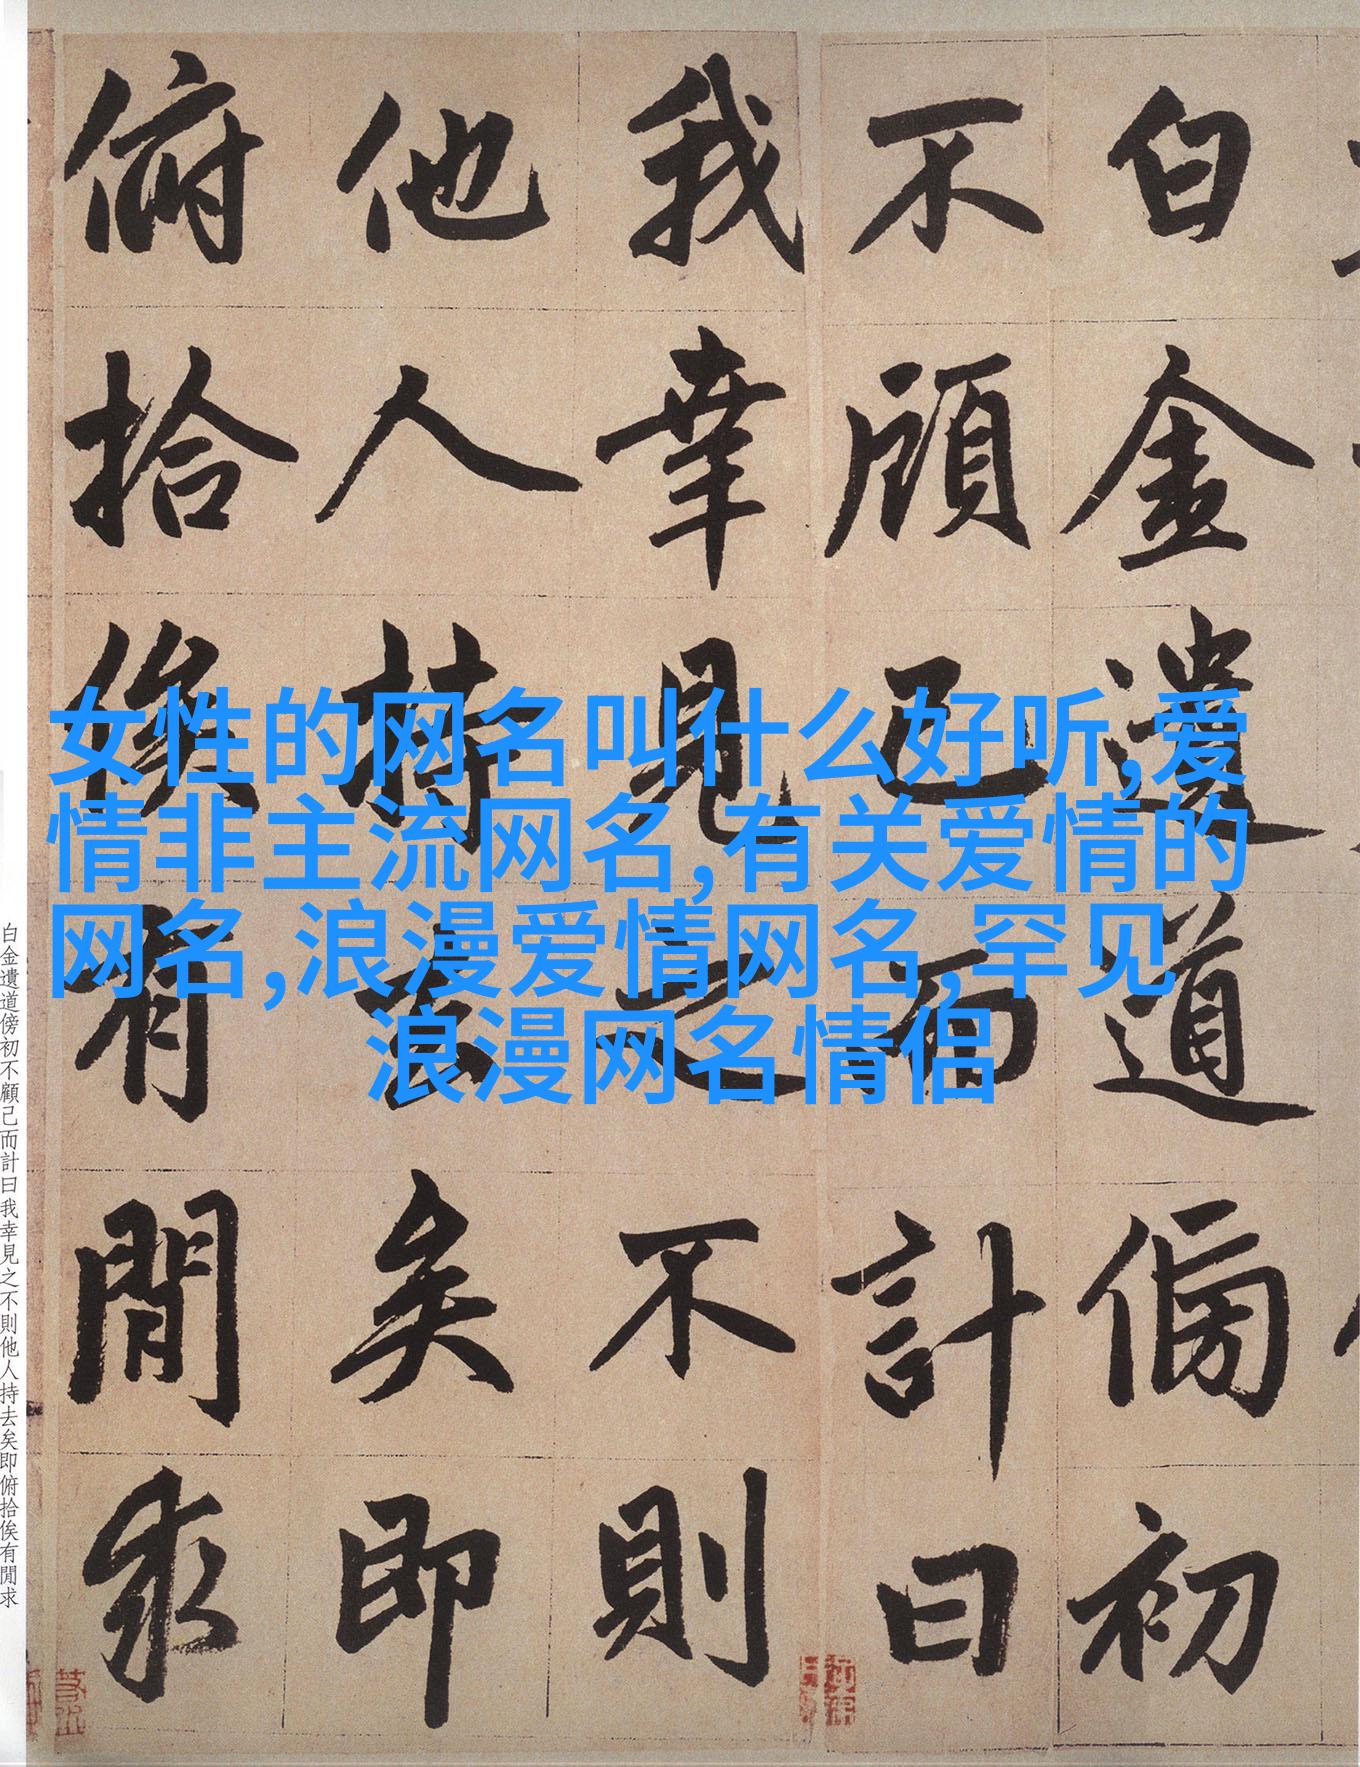 白金遺道傍初
不顧己而計曰
我幸見之不則
他人持去矣即
俯拾俟有閒求
女性的网名叫什么好听,爱
情非主流网名,有关爱情的
网名,浪漫爱情网名,罕见
浪漫网名情侣
白金遺道傍初不顧己而計曰我幸見之不則他人持去矣即俯拾俟有閒求